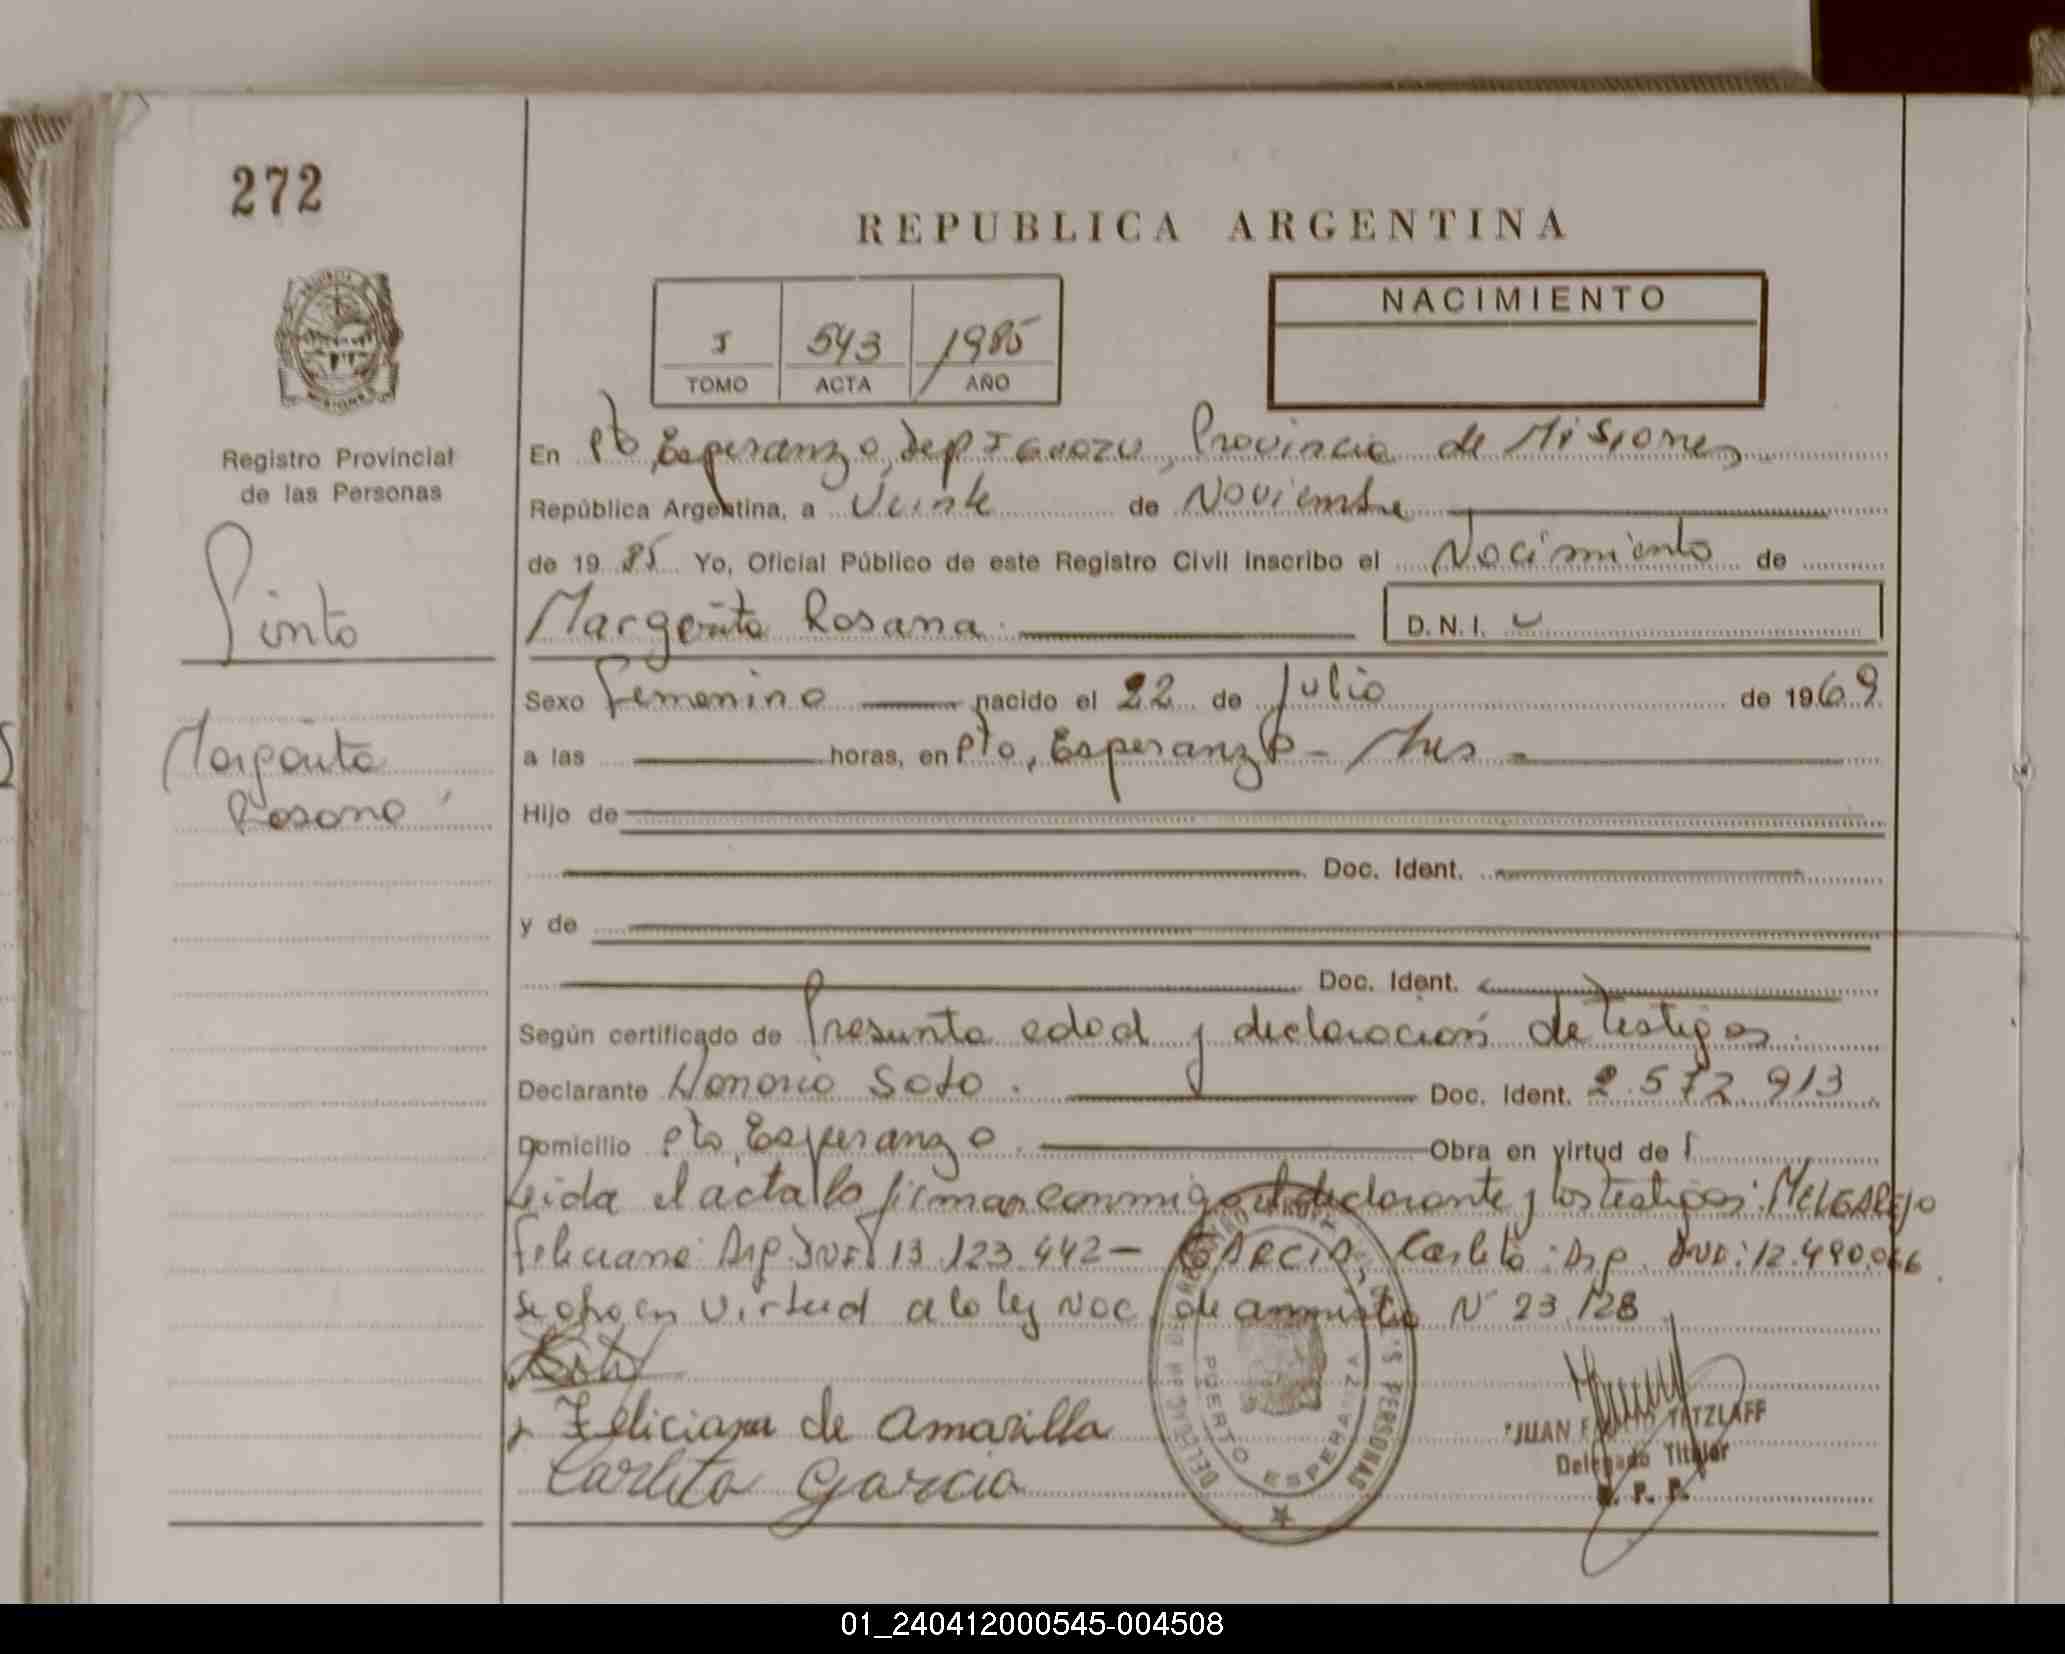 272
REPUBLICA ARGENTINA
NACIMIENTO
I 543 1985
TOMO ACTA AÑO
Registro Provincial
de las Personas
Pinto
Margarita
Rosana
En Pto, Esperanza, Dep Iguazu, Provincia de Misiones
República Argentina, a Veinte de Noviembre
de 19 85 Yo, Oficial Público de este Registro Civil Inscribo el Nacimiento de
Margarita Rosana. D.N.I.
Sexo Femenino nacido el 22 de Julio de 1969
a las horas, en Pto, Esperanza - Mnes -
Hijo de
Doc. Ident.
y de
Doc. Ident.
Según certificado de Presunta edad y declaración de testigos.
Declarante Honorio Soto. Doc. Ident. 2.572.913
Domicilio Pto, Esperanza. Obra en virtud de
Leida el acta la firman conmigo el declarante y los testigos: MELGAREJO
Feliciana: Arg. DNI 13.123.442 - GARCIA, Carlito: Arg. DNI: 12.490.066
Se obra en virtud a la ley Nac. de amnistia N° 23.128
Feliciana de Amarilla
Carlito Garcia
PUERTO ESPERANZA
JUAN TETZLAFF
Delegado Titular
R. P. P.
01_240412000545-004508